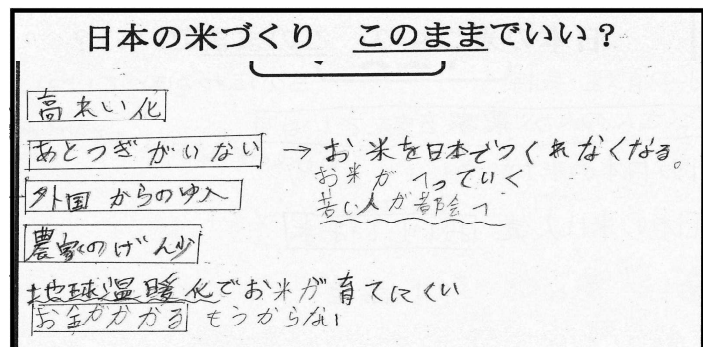 日本の米づくり このままでいい?
高れい化
あとつぎがいない → お米を日本でつくれなくなる。
お米がへっていく
外国からのゆ入
若い人が都会へ
農家のげん少
地球温暖化でお米が育てにくい
お金がかかる もうからない